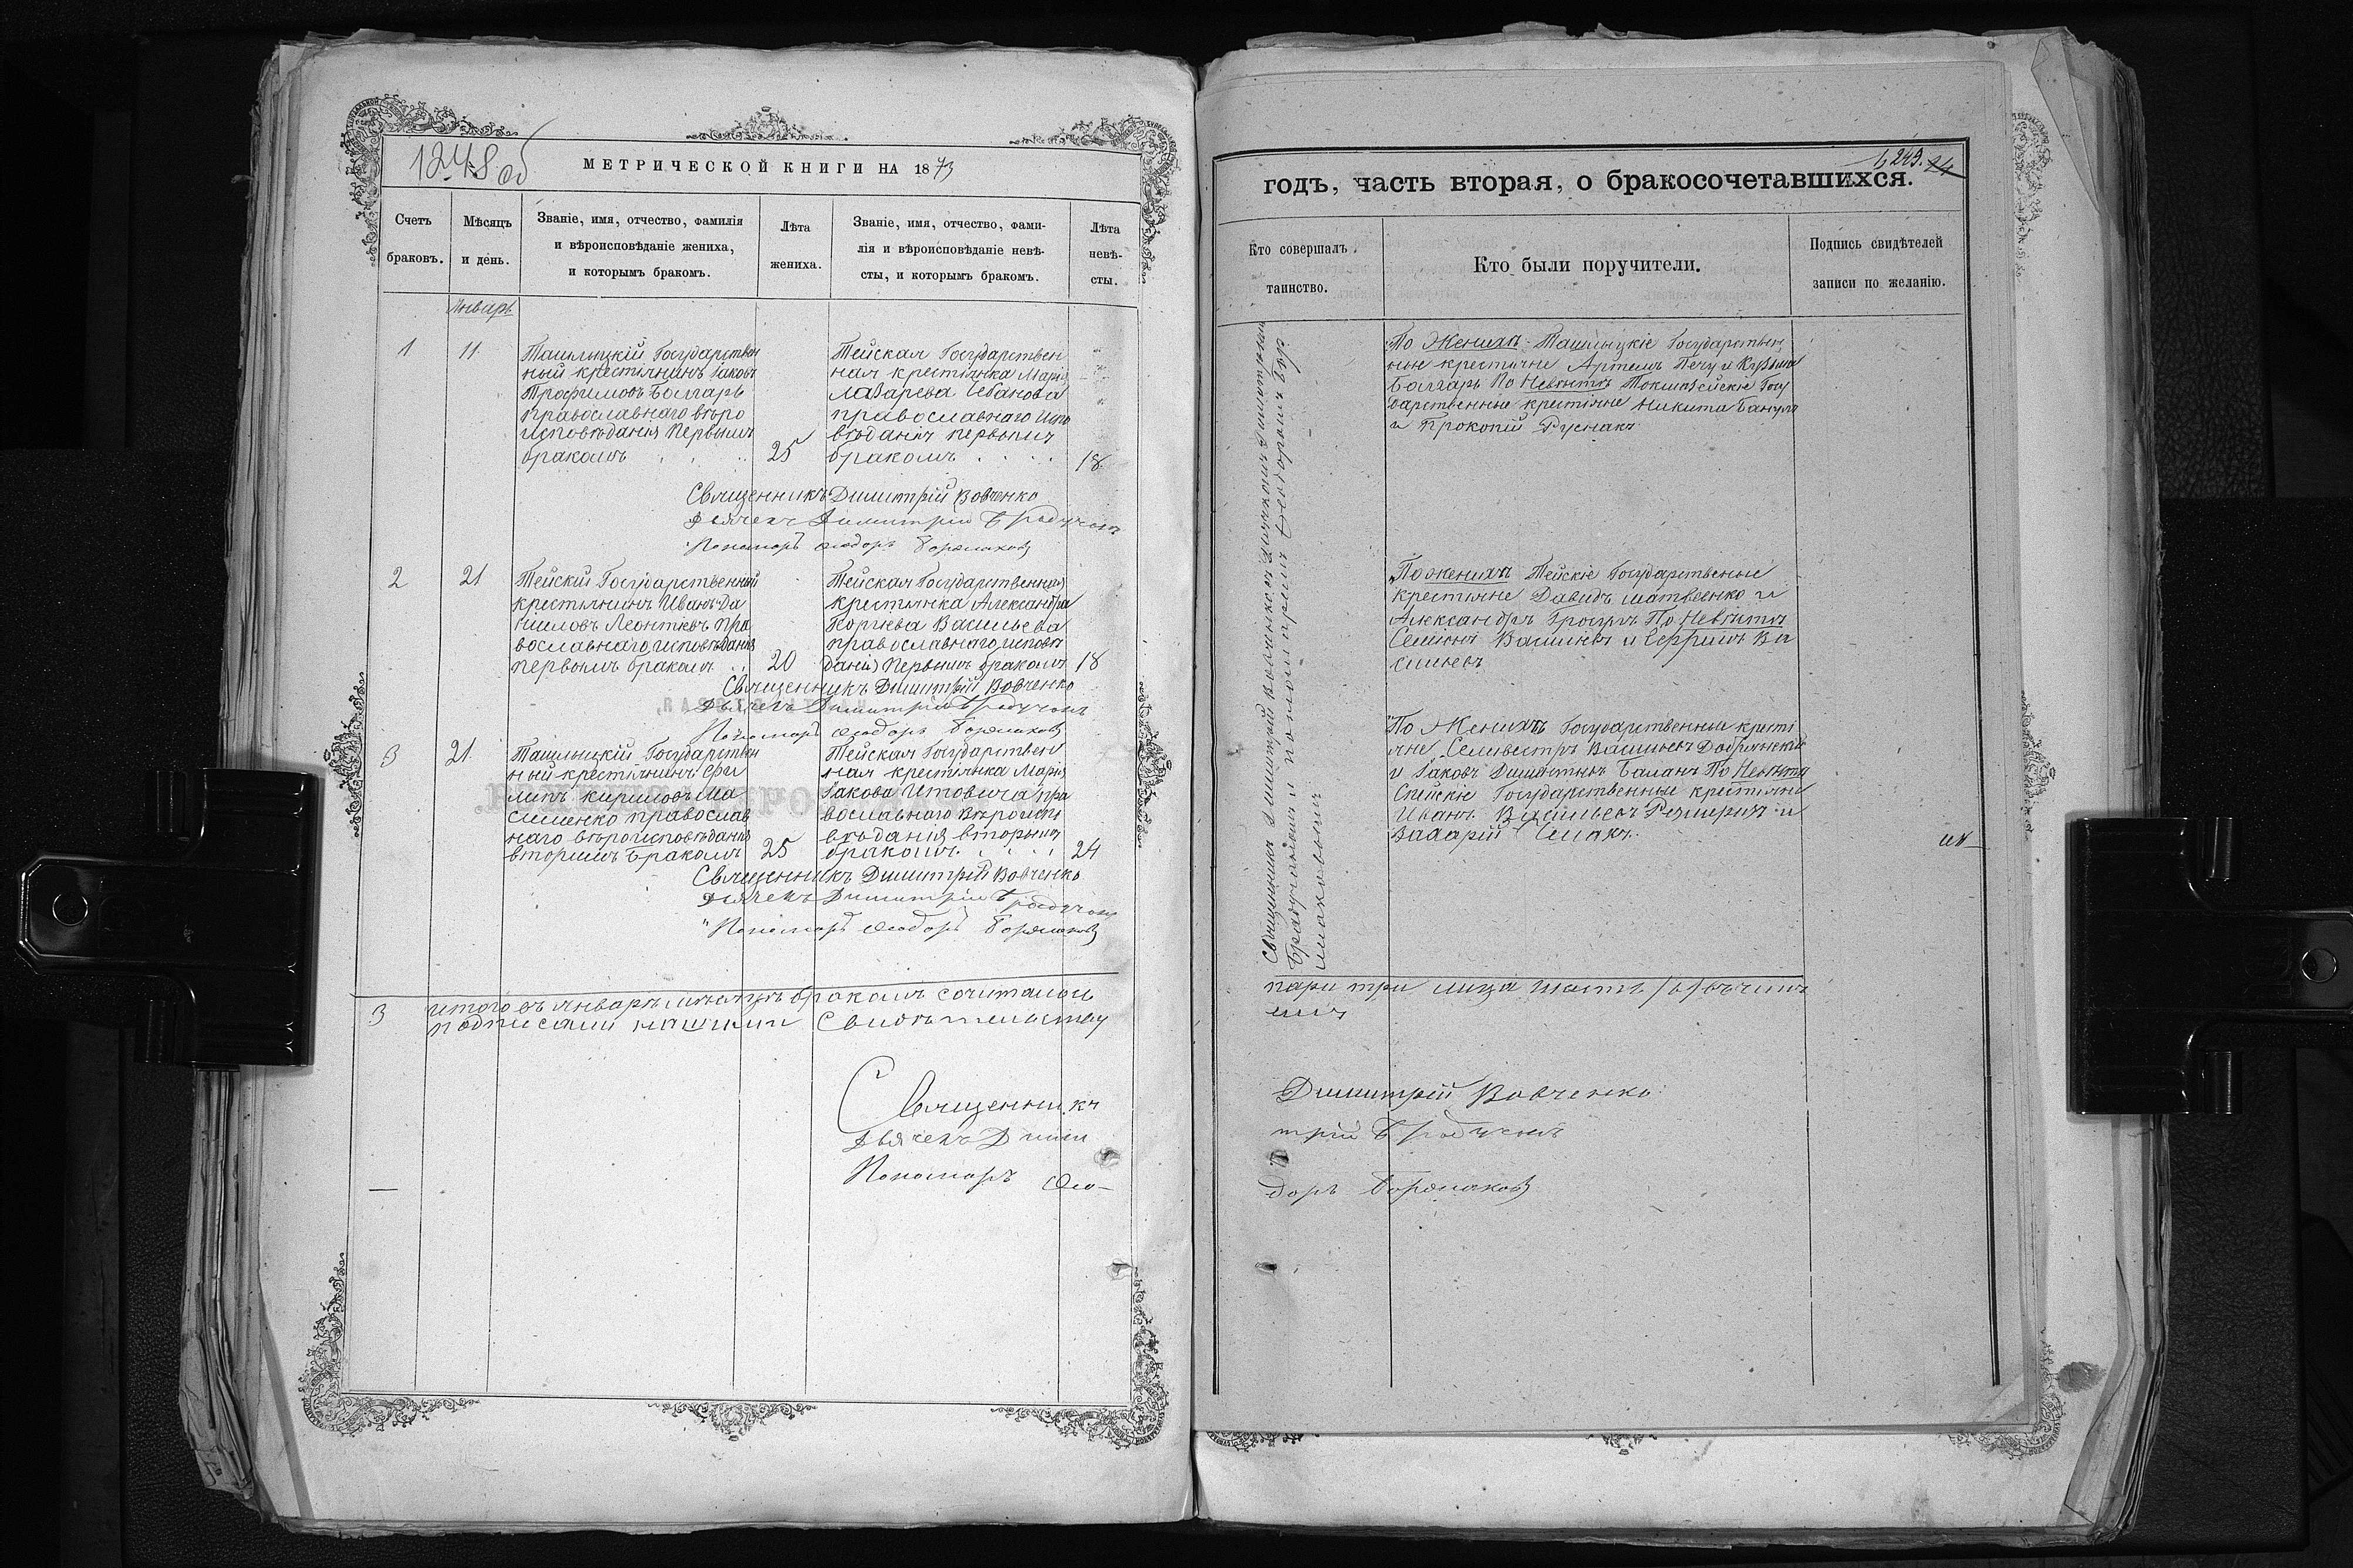 1248 об
МЕТРИЧЕСКОЙ КНИГИ НА 1873
Счетъ
браковъ.
Мѣсяцъ
и день.
Званіе, имя, отчество, фамилія
и вѣроисповѣданіе жениха,
и которымъ бракомъ.
Лѣта
жениха.
Званіе, имя, отчество, фами-
лія и вѣроисповѣданіе невѣ-
сты, и которымъ бракомъ.
Лѣта
невѣ-
сты.
Январь
1
11
Ташлыцкій Государствен
ный крестьянинъ Іаковъ
Трофимовъ Болгаръ
православнаго вѣро
исповѣданія первымъ
бракомъ
25
Тейская Государствен
ная крестьянка Марія
Лазарева Чебанова
православнаго испо
вѣданія первымъ
бракомъ
18
Священникъ Димитрій Вовченко
Дьячекъ Димитрій
Пономарь Ѳеодоръ
2
21
Тейскій Государственный
крестьянинъ Иванъ Да
ніиловъ Леонтіевъ пра
вославнаго исповѣданія
первымъ бракомъ
20
Тейская Государственная
крестьянка Александра
Васильева
православнаго исповѣ
данія первымъ бракомъ
18
Священникъ Димитрій Вовченко
Дьячекъ Димитрій
Пономарь Ѳеодоръ
3
21
Ташлыцкій Государствен
ный крестьянинъ Фи
липъ Кириловъ Ма
сименко православ
наго вѣроисповѣданія
вторымъ бракомъ
25
Тейская Государствен
ная крестьянка Марія
Іакова
вославнаго вѣроиспо
вѣданія вторымъ
бракомъ
24
Священникъ Димитрій Вовченко
Дьячекъ Димитрій
Пономарь Ѳеодоръ
3
итого въ январѣ мѣсяцѣ бракомъ сочитались
подписами нашими свидѣтельствуемъ
Священникъ
Дьячекъ Дими
Пономарь Ѳео-
1249. 24
годъ, часть вторая, о бракосочетавшихся.
Кто совершалъ
таинство.
Кто были поручители.
Подпись свидѣтелей
записи по желанію.
Священникъ Димитрій Вовченко
По Женихѣ Ташлыцкіе Государствен
ные крестьяне Артемъ и Кузьма
Болгаръ По Невѣстѣ Токмазейскіе Госу
дарственные крестьяне Никита
и Прокопій Руснакъ
По женихѣ Тейскіе Государственые
крестьяне Давидъ Матвеенко и
Александръ По Невѣстѣ
Семіонъ Васильевъ и Ва
сильевъ
По Женихѣ Государственные кресті
яне Селивестръ Васильевъ Добрянскій
и Іаковъ Баланъ По Невѣстѣ
Спейскіе Государственные крестьяне
Иванъ Васильевъ и
Захарій
пари три лица шесть /6/ въ чемъ
Димитрій Вовченко
трій
доръ